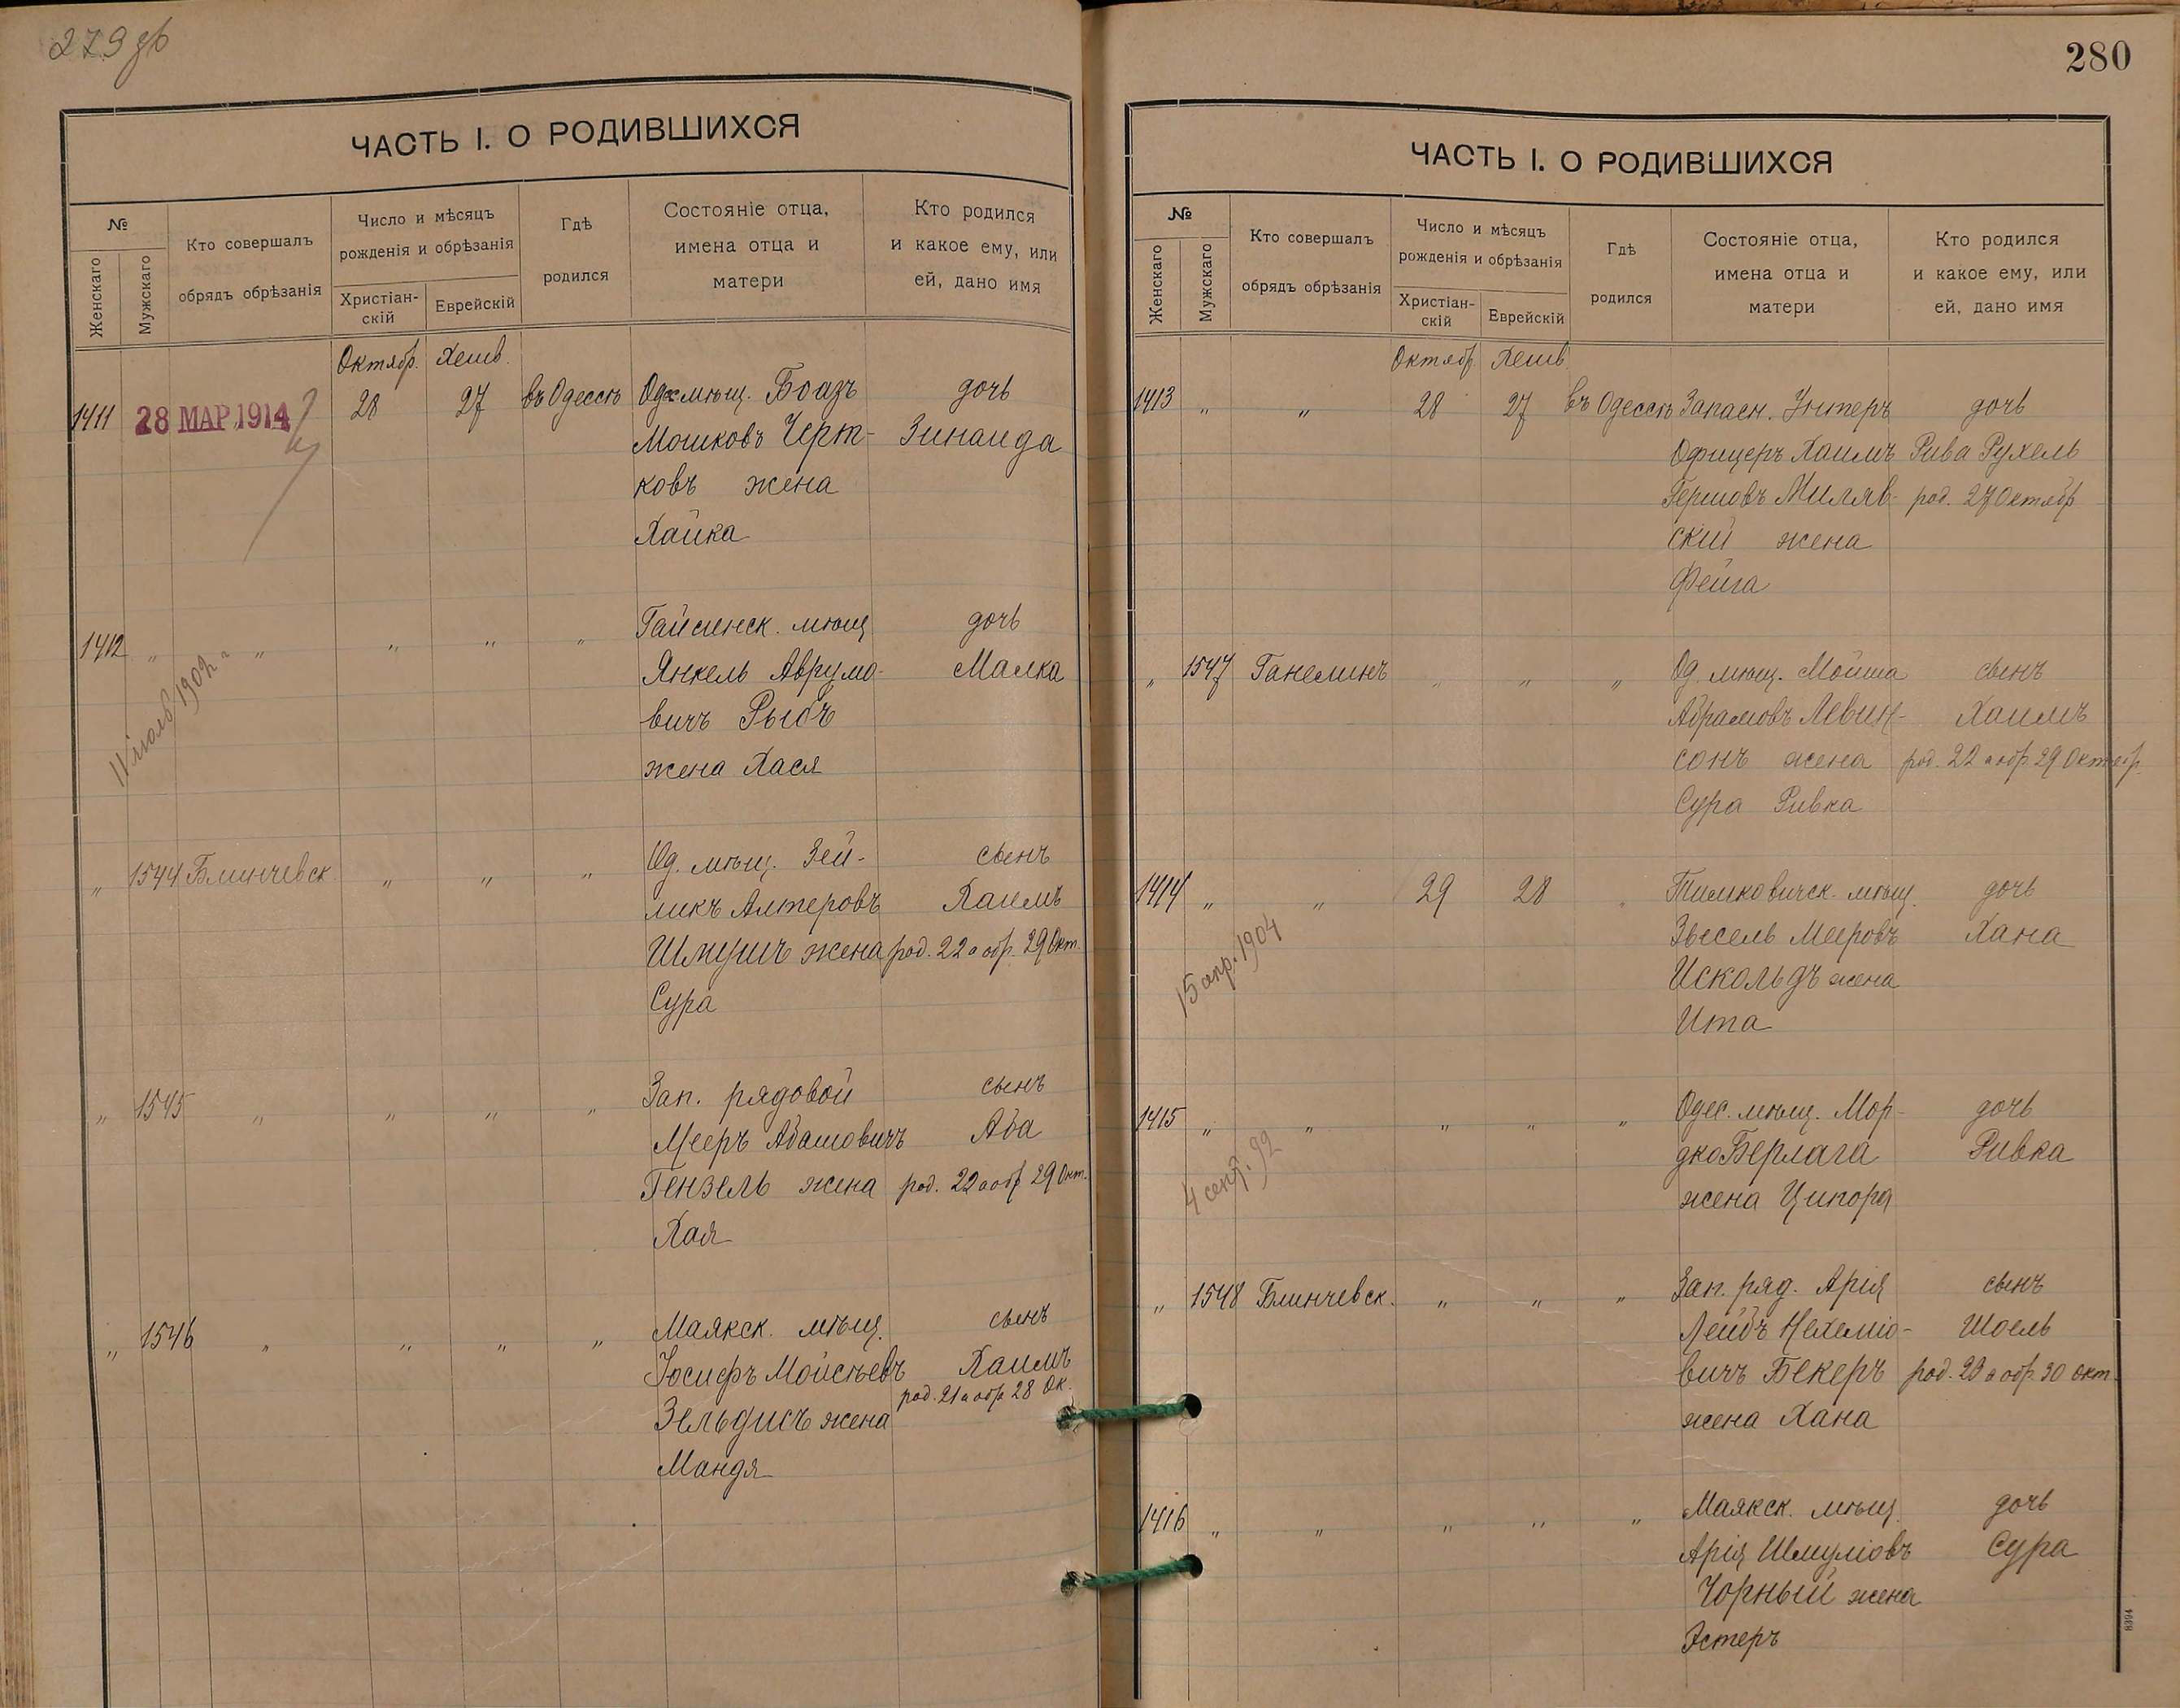 279 об
ЧАСТЬ I. О РОДИВШИХСЯ
№
Женскаго
Мужскаго
Кто совершалъ
обрядъ обрѣзанія
Число и мѣсяцъ
рожденія и обрѣзанія
Христіан-
скій
Еврейскій
Гдѣ
родился
Состояніе отца,
имена отца и
матери
Кто родился
и какое ему, или
ей, дано имя
Октябр. Хешв.
1411 28 МАР 1914 28 27 въ Одессѣ Одес. мѣщ. Боазъ дочь
Мошковъ Черт- Зинаида
ковъ жена
Хайка
1412 " " " " " Гайсинск. мѣщ дочь
11 іюль 1902 г
Янкель Аврумо- Малка
вичъ Рыбъ
жена Хася
" 1544 Блинчевск " " " Од. мѣщ. Зей- сынъ
ликъ Алтеровъ Хаимъ
Шмушъ жена род. 22 а обр. 29 Окт.
Сура
" 1545 " " " " Зап. рядовой сынъ
Мееръ Абашовичъ Аба
Гензель жена род. 22 а обр 29 Окт.
Хая
" 1546 " " " " Маякск. мѣщ. сынъ
Іосифъ Мойсѣевъ Хаимъ
род. 21 а обр 28 Ок.
Зельдисъ жена
Мандя
280
ЧАСТЬ I. О РОДИВШИХСЯ
№
Женскаго
Мужскаго
Кто совершалъ
обрядъ обрѣзанія
Число и мѣсяцъ
рожденія и обрѣзанія
Христіан-
скій
Еврейскій
Гдѣ
родился
Состояніе отца,
имена отца и
матери
Кто родился
и какое ему, или
ей, дано имя
Октябр. Хешв
1413 " " 28 27 въ Одессѣ Запасн. Унтеръ дочь
Офицеръ Хаимъ Рива Рухель
Гершовъ Миляв- род. 27 Октябр
скій жена
Фейга
" 1547 Ганелинъ " " " Од. мѣщ. Мойша сынъ
Абрамовъ Левин- Хаимъ
сонъ жена род. 22 а обр. 29 Октябр.
Сура Ривка
1414 " " 29 28 " Тимковичск. мѣщ. дочь
15 апр. 1904
Звесель Меировъ Хана
Искольдъ жена
Ита
1415 " " " " " Одес. мѣщ. Мор- дочь
4 сент. 92
дко Берлага Ривка
жена Ципора
" 1548 Блинчевск. " " " Зап. ряд. Арія сынъ
Лейбъ Нехеміо- Шоель
вичъ Бекеръ род. 23 а обр. 30 Окт.
жена Хана
1416 " " " " " Маякск. мѣщ. дочь
Арія Шмуліовъ Сура
Чорный жена
Эстеръ
8394